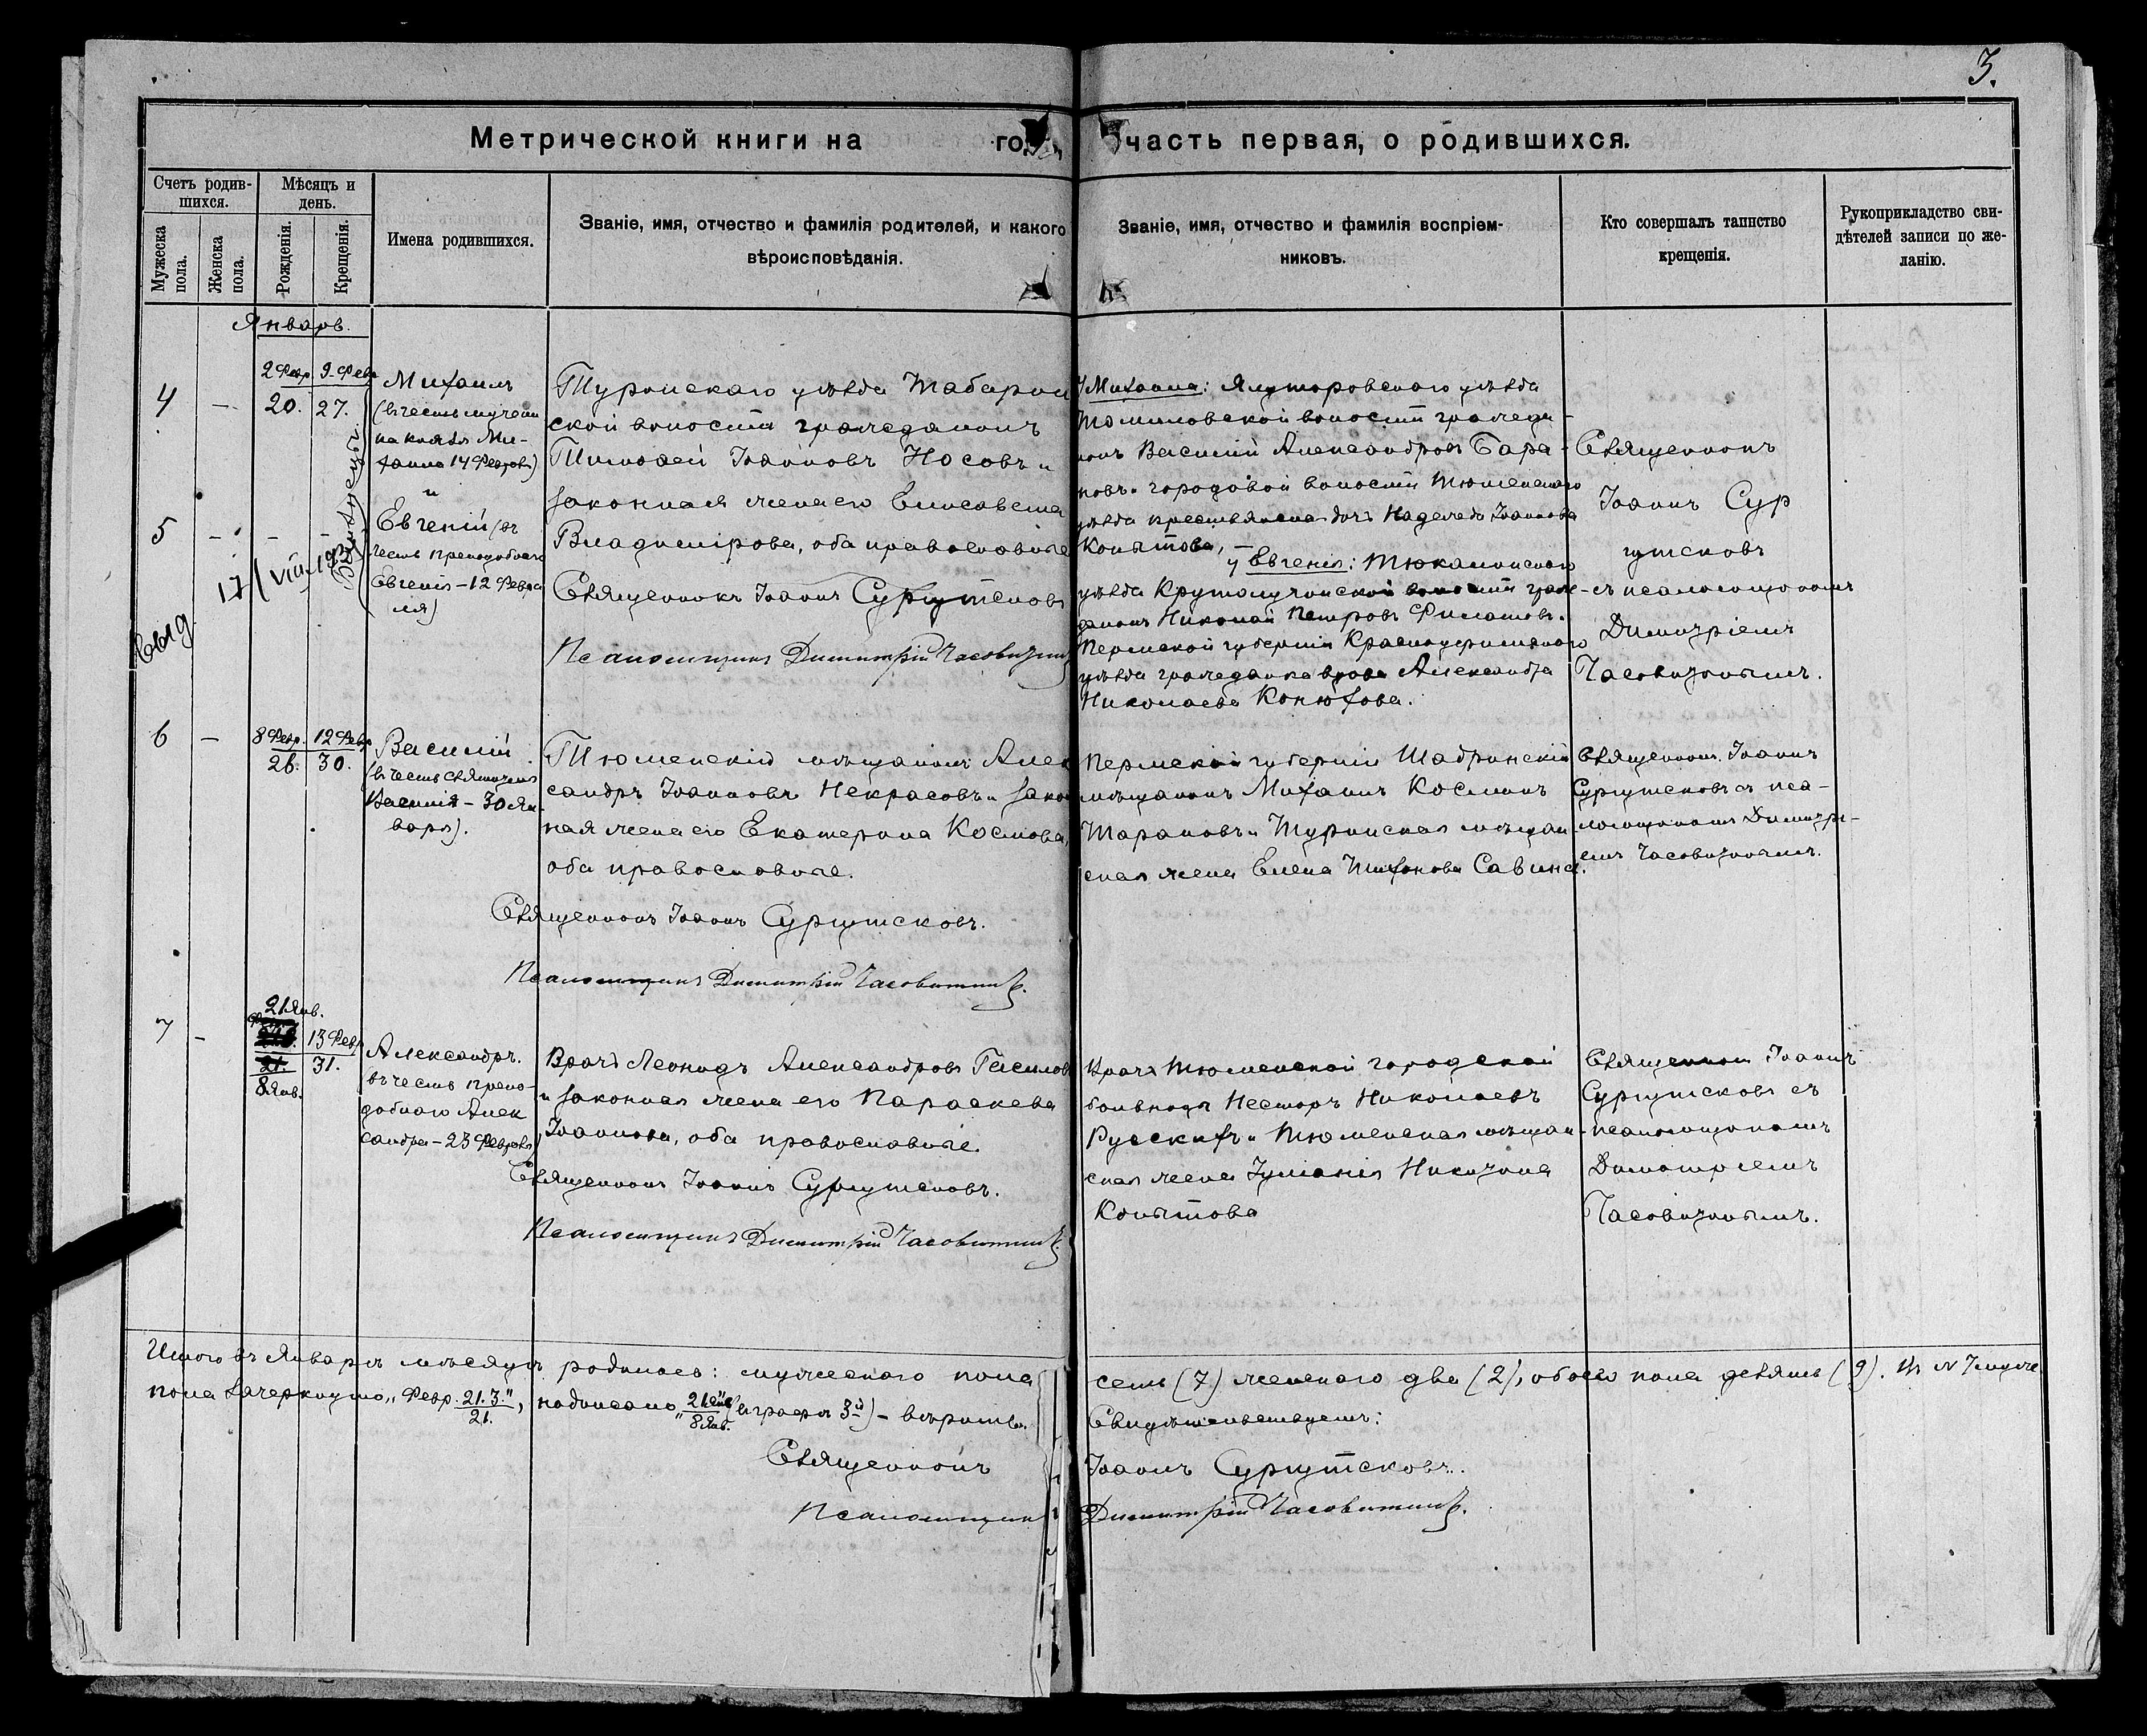 3.
Метрической книги на год, часть первая, о родившихся.
Счетъ родив-
шихся.
Мѣсяцъ и
день.
Мужеска
пола.
Женска
пола.
Рожденія.
Крещенія.
Имена родившихся.
Званіе, имя, отчество и фамилія родителей, и какого
вѣроисповѣданія.
Званіе, имя, отчество и фамилія воспріем-
никовъ.
Кто совершалъ таинство
крещенія.
Рукоприкладство сви-
дѣтелей записи по же-
ланію.
Январь.
4
-
2 Февр.
20.
9 Февр
27.
Михаилъ
(въ честь мучени
ка князя Ми-
хаила 14 Февраля)
и
5
- - -
Евгеній (въ
честь преподобнаго
Евгенія - 12 Февра
ля)
Близнецы
Выд 17/VIII-19
Туринскаго уѣзда Табарин
ской волости гражданинъ
Тимоѳей Іоанновъ Носовъ и
законная жена его Елисавета
Владимірова, оба православные
Священникъ Іоаннъ Сургутсковъ
Псаломщикъ Димитрій Часовитинъ
у Михаила: Ялуторовскаго уѣзда
Томиловской волости гражда-
нинъ Василій Александровъ Бара-
новъ и городовой волости Тюменскаго
уѣзда крестьянская дочь Надежда Іоаннова
Копытова,
у Евгенія: Тюкалинскаго
уѣзда Крутолучинской волости граж-
данинъ Николай Петровъ Филатовъ и
Пермской губерніи Красноуфимскаго
уѣзда гражданка вдова Александра
Николаева Конюхова.
Священникъ
Іоаннъ Сур
гутсковъ
съ псаломщикомъ
Димитріемъ
Часовитинымъ.
6
-
8 Февр.
26.
12 Февр
30.
Василій
(въ честь священномуч
Василія - 30 Ян-
варя).
Тюменскій мѣщанинъ Алек
сандръ Іоанновъ Некрасовъ и закон
ная жена его Екатерина Космова,
оба православные.
Священникъ Іоаннъ Сургутсковъ.
Псаломщикъ Димитрій Часовитинъ.
Пермской губерніи Шадринскій
мѣщанинъ Михаилъ Косминъ
Тарановъ и Туринская мѣщан
ская жена Елена Тихонова Савина.
Священникъ Іоаннъ
Сургутсковъ съ пса-
ломщикомъ Димитрі-
емъ Часовитинымъ.
7
-
21 Янв.
21.
8 Янв.
13 Февр
31.
Александръ.
(въ честь препо-
добнаго Алек
сандра - 23 Февраля)
Врачъ Леонидъ Александровъ Гасилов
и законная жена его Параскева
Іоаннова, оба православные.
Священникъ Іоаннъ Сургутсковъ.
Псаломщикъ Димитрій Часовитинъ.
Врачъ Тюменской городской
больницы Несторъ Николаевъ
Русскихъ и Тюменская мѣщан-
ская жена Іуліанія Никитина
Копытова
Священникъ Іоаннъ
Сургутсковъ съ
псаломщикомъ
Димитріемъ
Часовитинымъ.
Итого въ Январѣ мѣсяцѣ родилось: мужескаго пола семь (7) женскаго два (2), обоего пола девять (9). Въ № 7 муже
пола зачеркнуто „Февр. 21.3" 21., надписано „21 Янв. 8 Янв. (въ графѣ 3й) - вѣрить. Свидѣтельствуемъ:
Священникъ Іоаннъ Сургутсковъ.
Псаломщикъ Димитрій Часовитинъ.